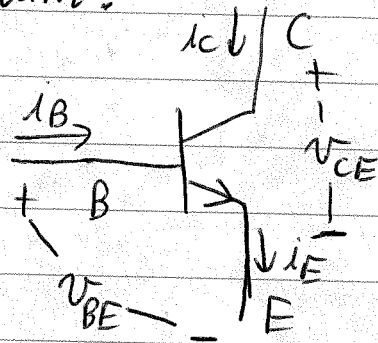 iC C
+
iB
vCE
+ B
−
iE
vBE
− E